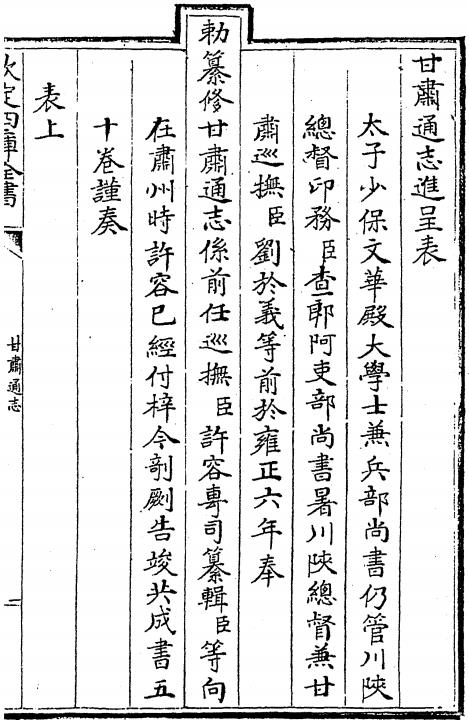 甘肅通志進呈表
太子少保文華殿大學士兼兵部尚書仍管川陝
總督印務臣查郎阿吏部尚書署川陝總督兼甘
肅巡撫臣劉於義等前於雍正六年奉
勅纂修甘肅通志係前任巡撫臣許容專司纂輯臣等向
在肅州時許容已經付梓今剞劂告竣共成書五
十卷謹奏
表上
欽定四庫全書
甘肅通志
一